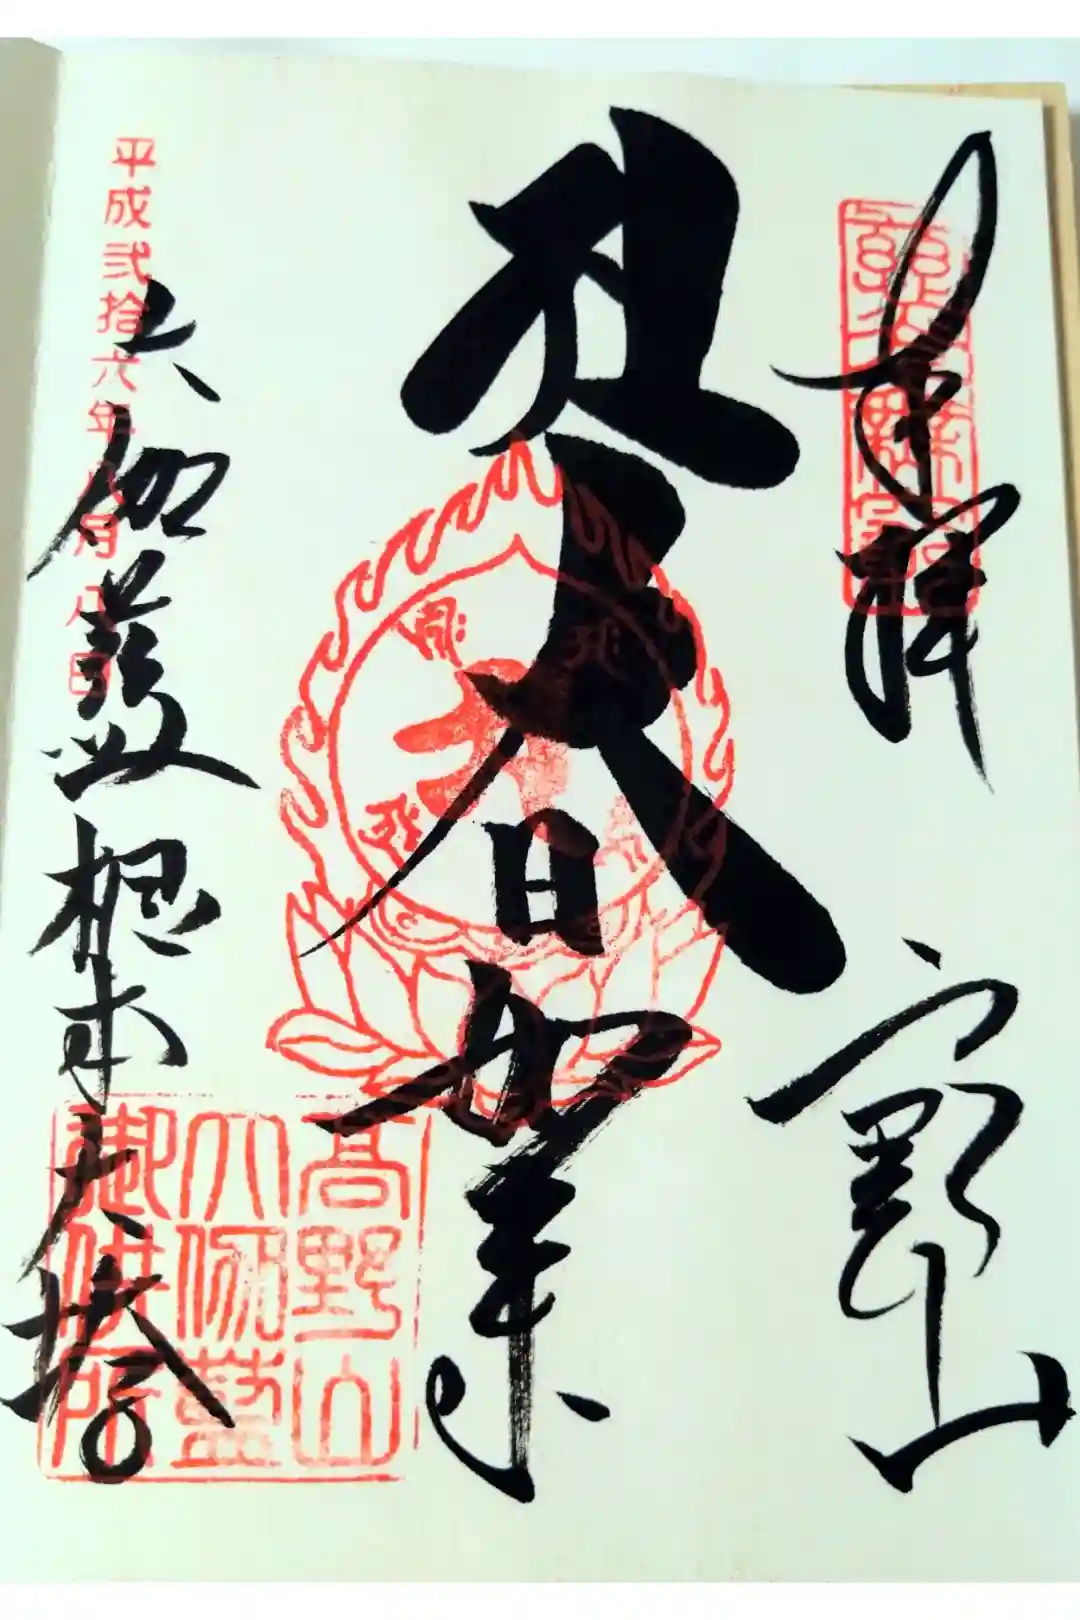 奉拝 高野山
大日如来
大伽藍根本大塔
平成弐拾六年八月八日
高野山
大伽藍
御供所